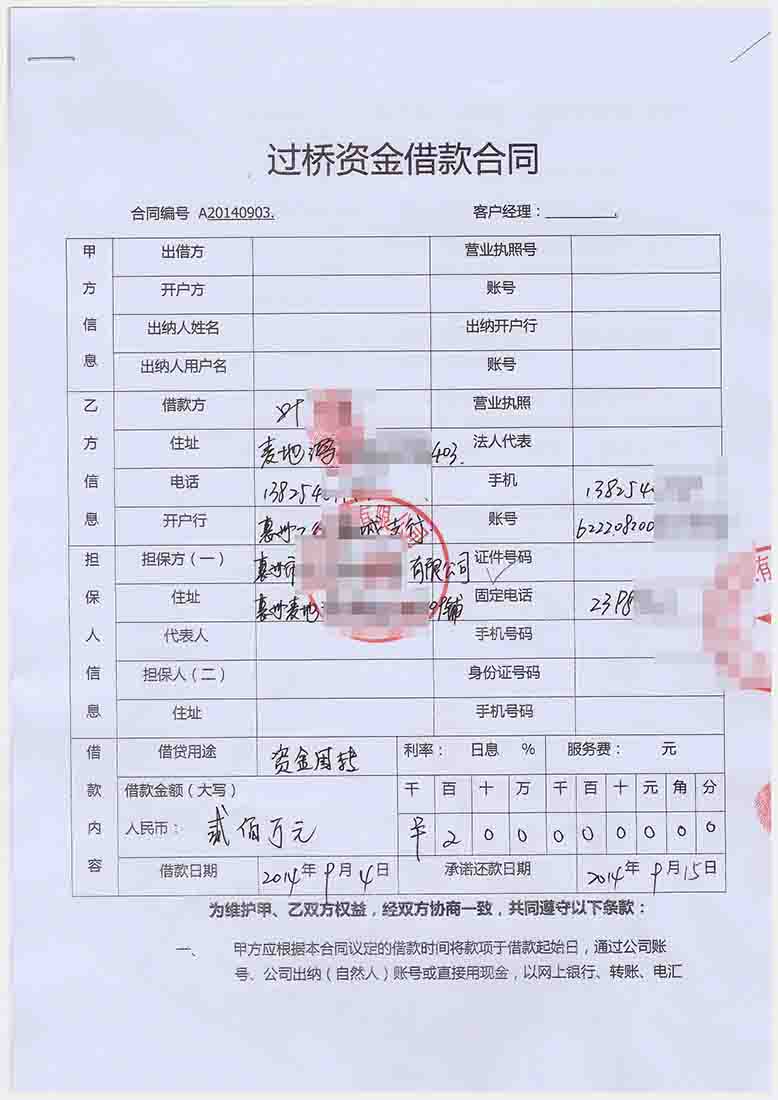 过桥资金借款合同
合同编号 A20140903.
客户经理：
甲方信息
出借方 营业执照号
开户方 账号
出纳人姓名 出纳开户行
出纳人用户名 账号
乙方信息
借款方 叶 营业执照
住址 麦地 403. 法人代表
电话 138254 手机 138254
开户行 惠州 城支行 账号 622208200
担保人信息
担保方（一） 惠州市 有限公司 证件号码
住址 惠州麦地 铺 固定电话 2398
代表人 手机号码
担保人（二） 身份证号码
住址 手机号码
借款内容
借贷用途 资金周转 利率： 日息 % 服务费： 元
借款金额（大写） 千 百 十 万 千 百 十 元 角 分
人民币： 贰佰万元 ¥ 2 0 0 0 0 0 0 0 0
借款日期 2014年9月4日 承诺还款日期 2014年9月15日
为维护甲、乙双方权益，经双方协商一致，共同遵守以下条款：
一、 甲方应根据本合同议定的借款时间将款项于借款起始日，通过公司账
号、公司出纳（自然人）账号或直接用现金，以网上银行、转账、电汇